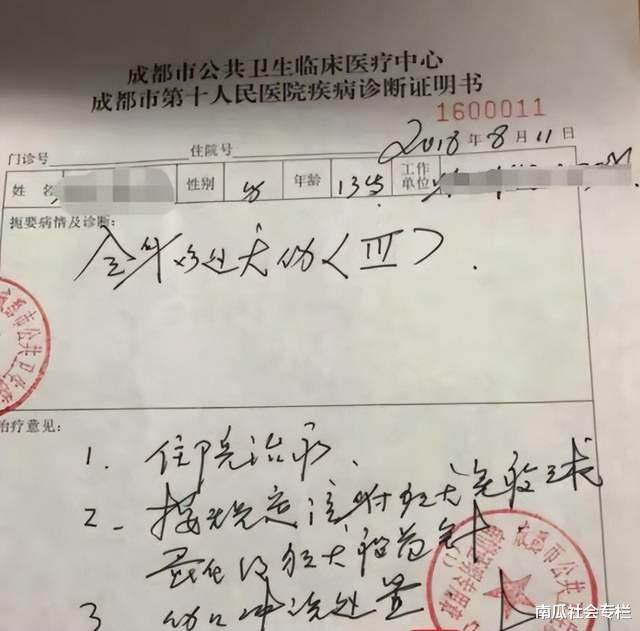 成都市公共卫生临床医疗中心
成都市第十人民医院疾病诊断证明书
1600011
门诊号 住院号 2018年8月11日
姓名 性别 女 年龄 13岁 工作单位
扼要病情及诊断:
全身多处犬伤〈III〉.
治疗意见:
1. 住院治疗.
2. 按规定注射狂犬免疫球
蛋白及狂犬疫苗针
3 伤口冲洗处置
成都市公共卫生
南瓜社会专栏